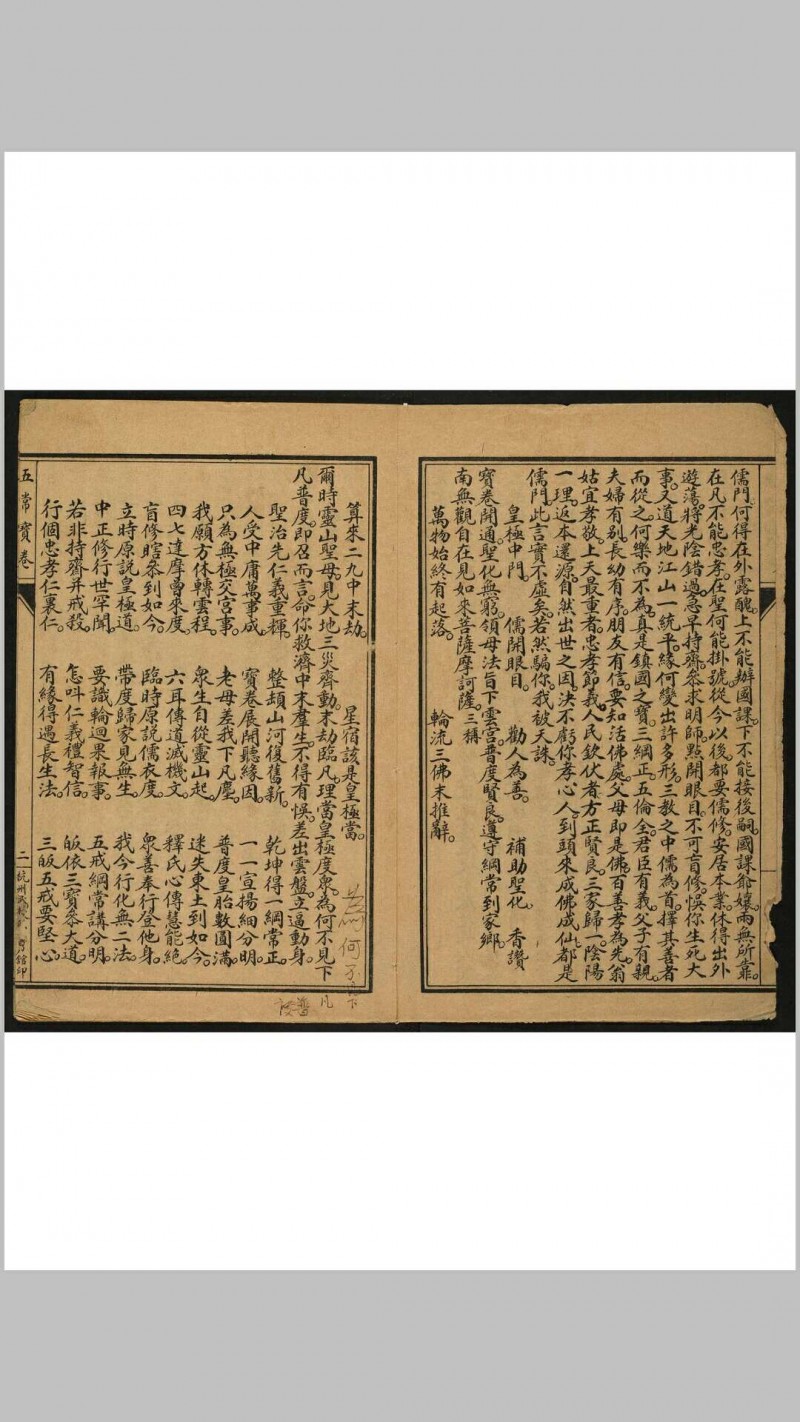 儒門。何得在外露醜。上不能辦國課。下不能接後嗣。國課爺孃。兩無所靠。
在凡不能忠孝。在聖何能掛號。從今以後。都要儒修。安居本業。休得出外
遊蕩。將光陰錯過。急早持齋。叅求明師。點開眼目。不可盲修。悞你生死大
事。又道天地江山一統平。緣何變出許多形。三教之中儒為首。擇其善者
而從之。何樂而不為。真是鎮國之寶。三綱正。五倫全。君臣有義。父子有親。
夫婦有別。長幼有序。朋友有信。要知活佛處。父母即是佛。百善孝為先。翁
姑宜孝敬。上天最重者。忠孝節義。人民欽伏者。方正賢良。三家歸一。陰陽
一理。返本還源。自然出世之因。決不虧你孝心人。到頭來成佛成仙。都是
儒門。此言實不虛矣。若然騙你。我被天誅。
皇極中門。 儒開眼目。 勸人為善。 補助聖化。 香讚
寶卷開通。聖化無窮。領母法旨下雲宮。普度賢良。遵守綱常到家鄉。
南無觀自在見如來菩薩摩訶薩。三稱
萬物始終有起落。 輪流三佛末推辭。
算來二九中末劫。 星宿該是皇極當。
爾時靈山聖母。見大地三災齊動。末劫臨凡。理當皇極度衆。為何不見下
凡普度。即召而言。命你救濟中末羣生。不得有悞。差出雲盤。立逼動身。
聖治先仁義重輝。 整頓山河復舊新。 乾坤得一綱常正。
人受中庸萬事成。 寶卷展開聽緣因。 一一宣揚細分明。
只為無極交宮事。 老母差我下凡塵。 普度皇胎數圓滿。
我願方休轉雲程。 衆生自從靈山起。 迷失東土到如今。
四七達摩曾來度。 六耳傳道滅機文。 釋氏心傳慧能絕。
盲修瞎叅到如今。 臨時原說儒衣度。 衆善奉行登他身。
立時原說皇極道。 帶度歸家見無生。 我今行化無二法。
中正修行世罕聞。 要識輪迴果報事。 五戒綱常講分明。
若非持齋并戒殺。 怎呌仁義禮智信。 皈依三寶叅大道。
行個忠孝仁裏仁。 有緣得遇長生法。 三皈五戒要堅心。
五常寶卷
二
杭州
印
何不
下
凡
普